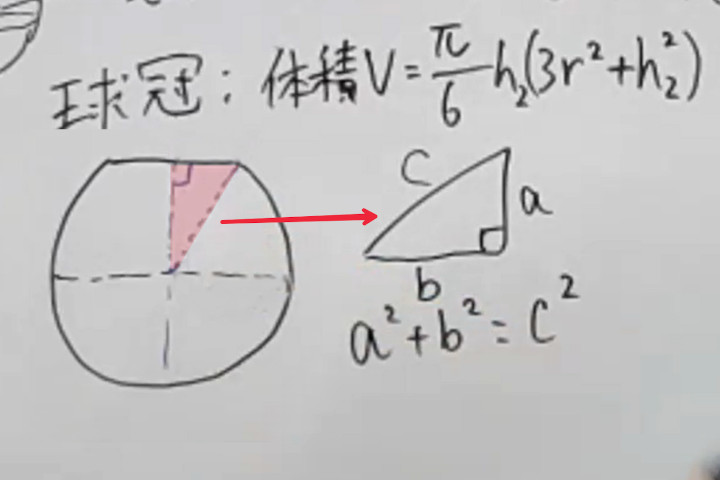 球冠：体積V=π/6 h₂(3r²+h₂²)
c
a
b
a²+b²=c²